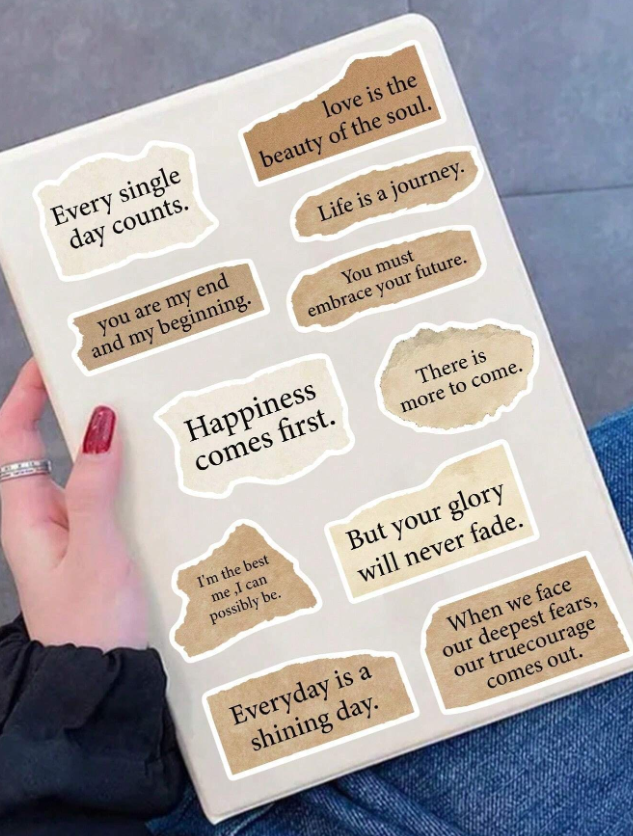 love is the
beauty of the soul.
Every single
day counts.
Life is a journey.
You must
embrace your future.
you are my end
and my beginning.
There is
more to come.
Happiness
comes first.
But your glory
will never fade.
I'm the best
me ,I can
possibly be.
When we face
our deepest fears,
our truecourage
comes out.
Everyday is a
shining day.